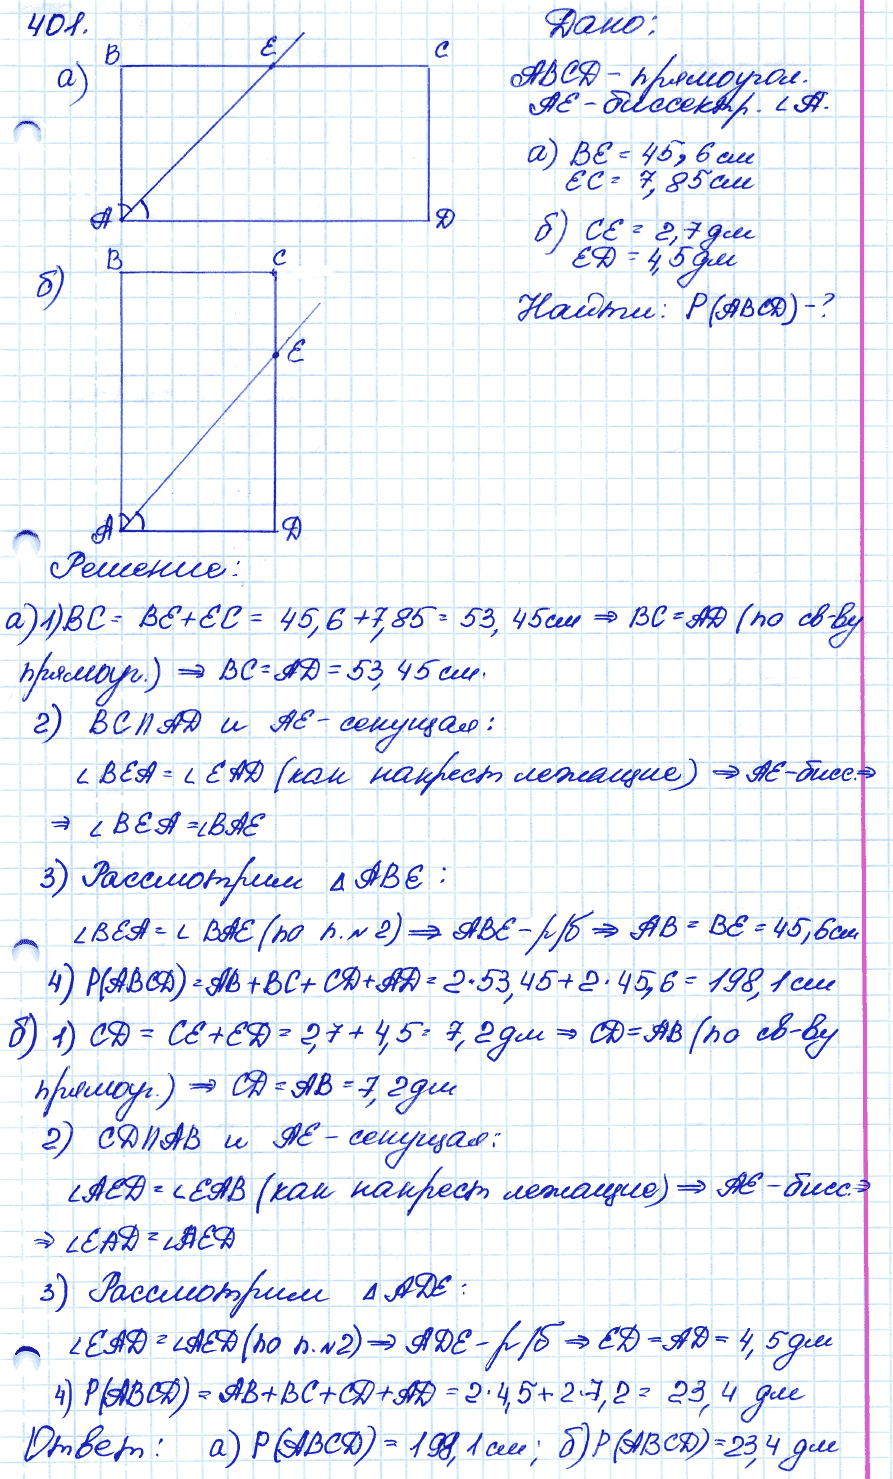 401.
а)
B E C
A D
Дано:
ABCD - прямоугол.
AE - биссектр. ∠A.
а) BE = 45,6 см
EC = 7,85 см
б) CE = 2,7 дм
ED = 4,5 дм
Найти: P(ABCD) - ?
б)
B C
E
A D
Решение:
а) 1) BC = BE + EC = 45,6 + 7,85 = 53,45 см ⇒ BC = AD (по св-ву
прямоуг.) ⇒ BC = AD = 53,45 см.
2) BC || AD и AE - секущая:
∠BEA = ∠EAD (как накрест лежащие) ⇒ AE - бисс. ⇒
⇒ ∠BEA = ∠BAE
3) Рассмотрим △ABE:
∠BEA = ∠BAE (по п. №2) ⇒ ABE - р/б ⇒ AB = BE = 45,6 см
4) P(ABCD) = AB + BC + CD + AD = 2·53,45 + 2·45,6 = 198,1 см
б) 1) CD = CE + ED = 2,7 + 4,5 = 7,2 дм ⇒ CD = AB (по св-ву
прямоуг.) ⇒ CD = AB = 7,2 дм
2) CD || AB и AE - секущая:
∠AED = ∠EAB (как накрест лежащие) ⇒ AE - бисс. ⇒
⇒ ∠EAD = ∠AED
3) Рассмотрим △ADE:
∠EAD = ∠AED (по п. №2) ⇒ ADE - р/б ⇒ ED = AD = 4,5 дм
4) P(ABCD) = AB + BC + CD + AD = 2·4,5 + 2·7,2 = 23,4 дм
Ответ: а) P(ABCD) = 198,1 см; б) P(ABCD) = 23,4 дм